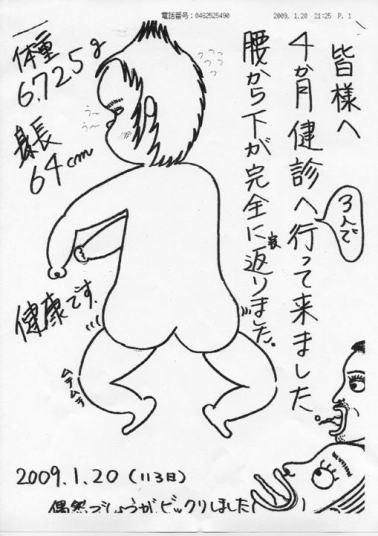 電話番号:0462525490 2009. 1.20 21:25 P. 1
皆様へ
4か月健診へ行って来ました
3人で
腰から下が完全に寝返りました。
体重
6.725g
身長
64cm
う~
う~
健康です。
ムチムチ
2009.1.20
ビックリしました